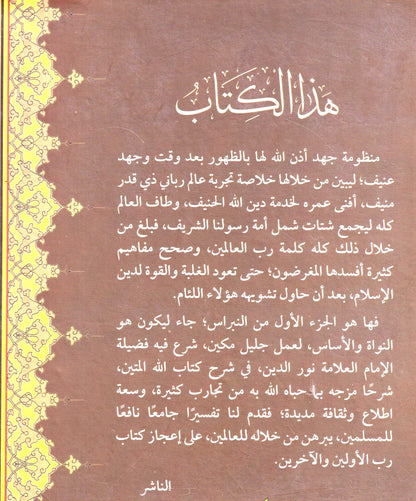 هَذَا الكِتَابُ
منظومة جهد أذن الله لها بالظهور بعد وقت وجهد
عنيف؛ ليبين من خلالها خلاصة تجربة عالم رباني ذي قدر
منيف، أفنى عمره لخدمة دين الله الحنيف، وطاف العالم
كله ليجمع شتات شمل أمة رسولنا الشريف، فبلغ من
خلال ذلك كله كلمة رب العالمين، وصحح مفاهيم
كثيرة أفسدها المغرضون؛ حتى تعود الغلبة والقوة لدين
الإسلام، بعد أن حاول تشويهه هؤلاء اللئام.
فها هو الجزء الأول من النبراس؛ جاء ليكون هو
النواة والأساس، لعمل جليل مكين، شرع فيه فضيلة
الإمام العلامة نور الدين، في شرح كتاب الله المتين،
شرحًا مزجه بما حباه الله به من تجارب كثيرة، وسعة
اطلاع وثقافة مديدة؛ فقدم لنا تفسيرًا جامعًا نافعًا
للمسلمين، يبرهن من خلاله للعالمين، على إعجاز كتاب
رب الأولين والآخرين.
الناشر